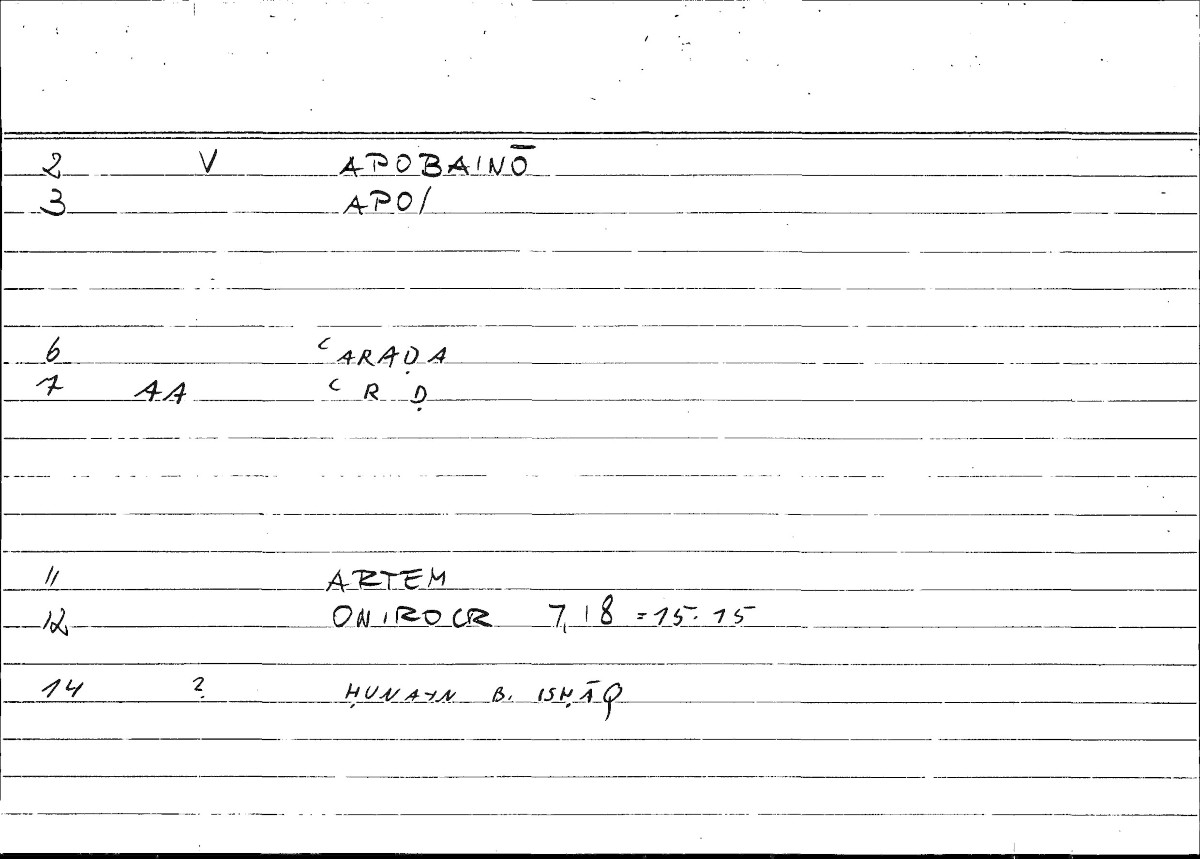 2 V APOBAINŌ
3 APO/
6 ʿARAḌA
7 AA ʿ R Ḍ
11 ARTEM
12 ONIROCR 7,18 = 15.15
14 ? ḤUNAYN B. ISḤĀQ